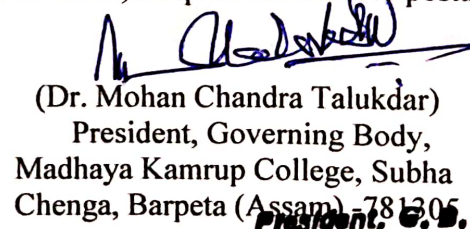 (Dr. Mohan Chandra Talukdar)
President, Governing Body,
Madhaya Kamrup College, Subha
Chenga, Barpeta (Assam)-781305
President, G. B.